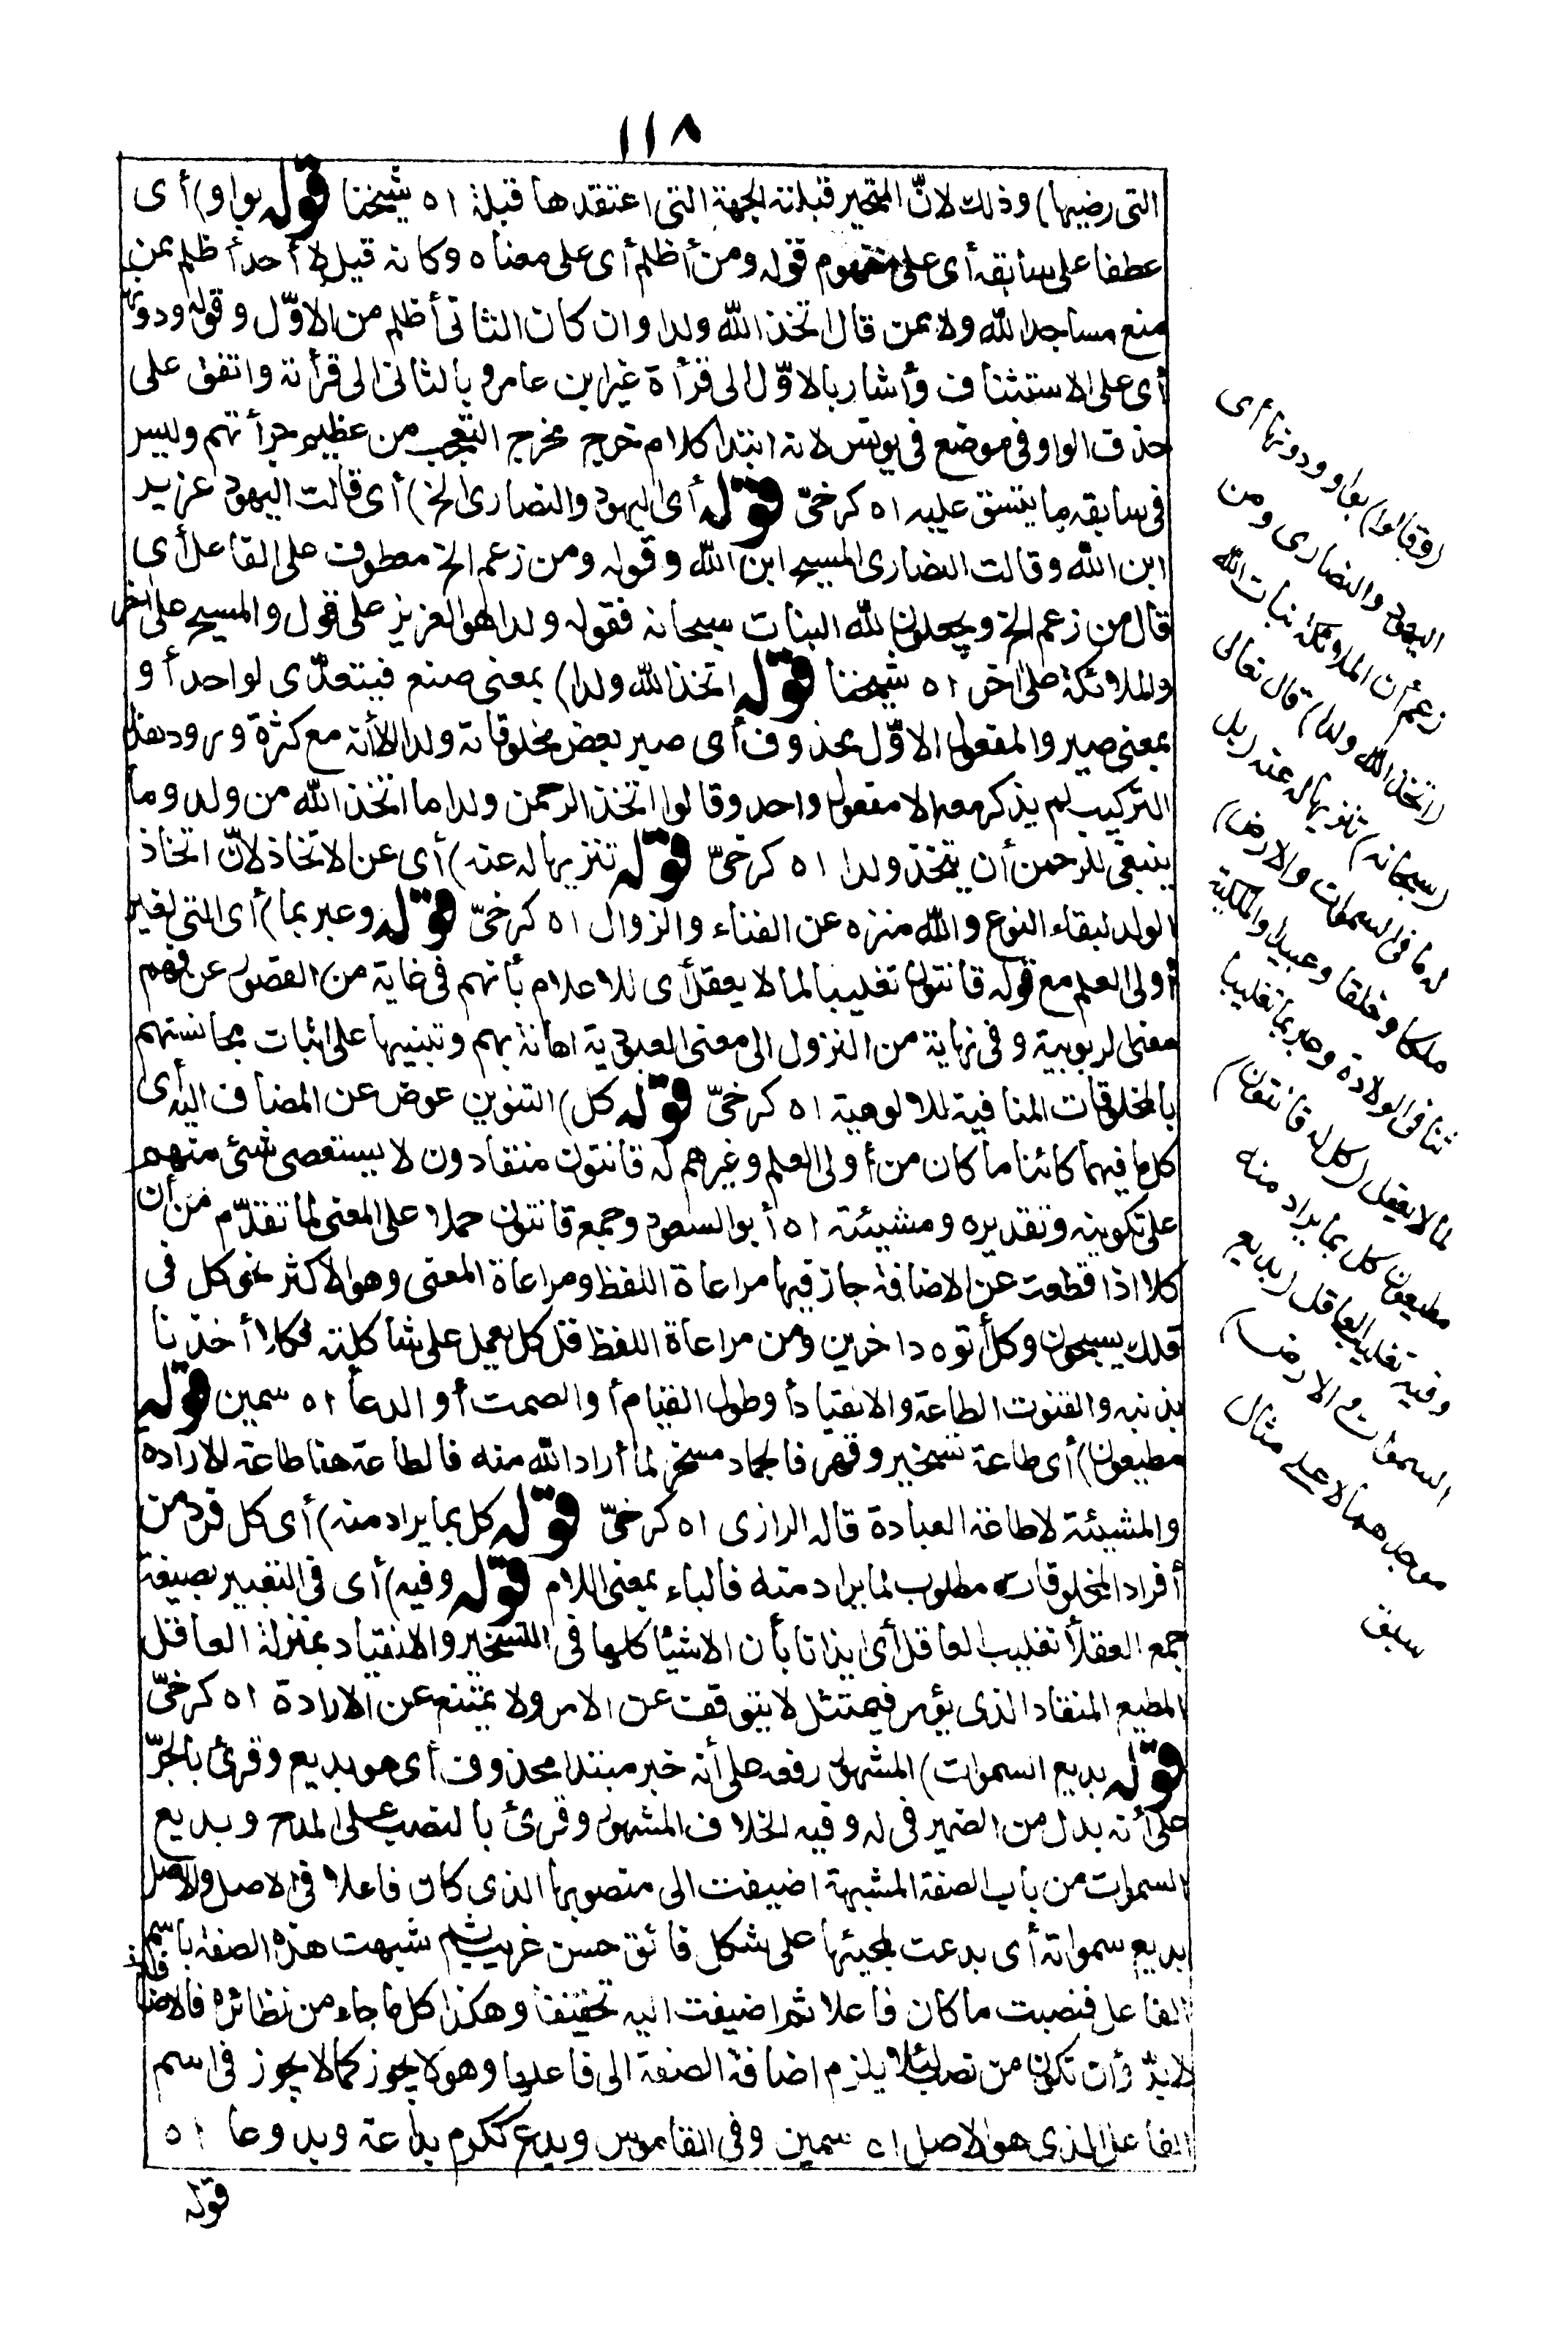 ١١٨
التى رضيها) وذلك لانّ المتحير قبلته الجهة التى اعتقدها قبلة اه شيخنا قوله بواو) أى
عطفا على سابقه أى على مفهوم قوله ومن أظلم أى على معناه وكانه قيل لا أحد أظلم ممن
منع مساجد الله ولا ممن قال اتخذ الله ولدا وان كان الثانى أظلم من الاوّل وقوله ودونها
أى على الاستئناف وأشار بالاوّل الى قرأة غير ابن عامر وبالثانى الى قرأته واتفق على
حذف الواو فى موضع فى يونس لانه ابتدا كلام خرج مخرج التعجب من عظيم جرأتهم وليس
فى سابقه ما ينسق عليه اه كرخىّ قوله أى اليهود والنصارى الخ) أى قالت اليهود عزير
ابن الله وقالت النصارى المسيح ابن الله وقوله ومن زعم الخ معطوف على الفاعل أى
قال من زعم الخ ويجعلون لله البنات سبحانه فقوله ولدا هو العزيز على قول والمسيح على اخر
والملائكة على اخر اه شيخنا قوله اتخذ الله ولدا) بمعنى صنع فيتعدّى لواحد أو
بمعنى صير والمفعول الاوّل محذوف أى صير بعض مخلوقاته ولدا لأنه مع كثرة ورود هذا
التركيب لم يذكر معه الا مفعول واحد وقالوا اتخذ الرحمن ولدا ما اتخذ الله من ولد وما
ينبغى للرحمن أن يتخذ ولدا اه كرخىّ قوله تنزيها له عنه) أى عن الاتخاذ لانّ اتخاذ
الولد لبقاء النوع والله منزه عن الفناء والزوال اه كرخىّ قوله وعبر بما) أى التى لغير
أولى العلم مع قوله قانتون تغليبا لما لا يعقل أى للاعلام بأنهم فى غاية من القصور عن فهم
معنى الربوبية وفى نهاية من النزول الى معنى العبودية اهانة بهم وتنبيها على اثبات مجانستهم
بالمخلوقات المنافية للالوهية اه كرخىّ قوله كل) التنوين عوض عن المضاف اليه أى
كل ما فيهما كائنا ما كان من أولى العلم وغيرهم له قانتون منقادون لا يستعصى شئ منهم
على تكوينه وتقديره ومشيئته اه أبو السعود وجمع قانتون حملا على المعنى لما تقدّم من أن
كلا اذا قطعت عن الاضافة جاز فيها مراعاة اللفظ ومراعاة المعنى وهو الاكثر نحو كل فى
فلك يسبحون وكل أتوه داخرين ومن مراعاة اللفظ قل كل يعمل على شاكلته فكلا أخذنا
بذنبه والقنوت الطاعة والانقياد أو طول القيام أو الصمت أو الدعأ اه سمين قوله
مطيعون) أى طاعة تسخير وقهر فالجماد مسخر لما أراد الله منه فالطاعة هنا طاعة الارادة
والمشيئة لا طاعة العبادة قاله الرازى اه كرخىّ قوله كل بما يراد منه) أى كل فرد من
أفراد المخلوقات مطلوب لما يراد منه فالباء بمعنى اللام قوله وفيه) أى فى التعبير بصيغة
جمع العقلأ تغليب العاقل أى ايذانا بأن الاشيأ كلها فى التسخير والانقياد بمنزلة العاقل
المطيع المنقاد الذى يؤمر فيمتثل لا يتوقف عن الامر ولا يمتنع عن الارادة اه كرخىّ
قوله بديع السموات) المشهور رفعه على أنه خبر مبتدا محذوف أى هو بديع وقرئ بالجرّ
على أنه بدل من الضمير فى له وفيه الخلاف المشهور وقرئ بالنصب على المدح وبديع
السموات من باب الصفة المشبهة اضيفت الى منصوبها الذى كان فاعلا فى الاصل والاصل
بديع سمواته أى بدعت لمجيئها على شكل فائق حسن غريب ثم شبهت هذه الصفة باسم
الفاعل فنصبت ما كان فاعلا ثم اضيفت اليه تخفيفا وهكذا كل ما جاء من نظائره فالاضافة
لا بدّ وأن تكون من نصب لئلا يلزم اضافة الصفة الى فاعلها وهو لا يجوز كما لا يجوز فى اسم
الفاعل الذى هو الاصل اه سمين وفى القاموس وبدع ككرم بداعة وبدوعا اه
قوله
(وقالوا) بواو ودونها أى
اليهود والنصارى ومن
زعم أن الملائكة بنات الله
(اتخذ الله ولدا) قال تعالى
(سبحانه) تنزيها له عنه (بل
له ما فى السموات والارض)
ملكا وخلقا وعبيدا والملكية
تنافى الولادة وعبر بما تغليبا
لما لا يعقل (كل له قانتون)
مطيعون كل بما يراد منه
وفيه تغليب العاقل (بديع
السموات والارض)
موجدهما لا على مثال
سبق